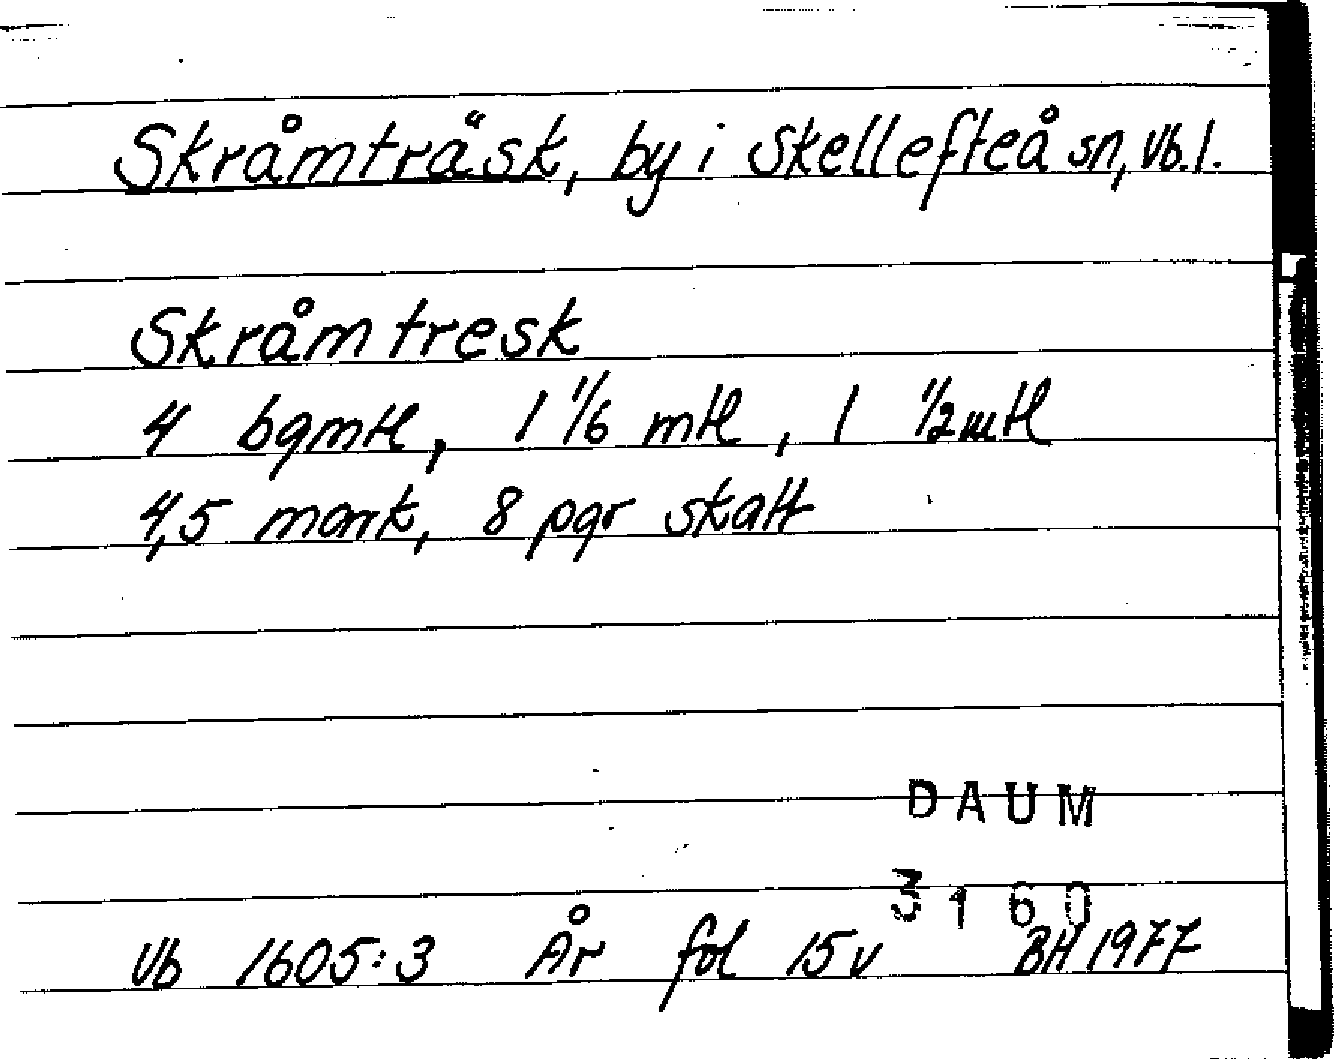 Skråmträsk, by i Skellefteå sn, Vb. l.
Skråmtresk
4 bgmtl, 1 1/6 mtl, 1 1/2 mtl
4,5 mark, 8 pgr skatt
DAUM
3160
Vb 1605:3 År fol 15v BH 1977